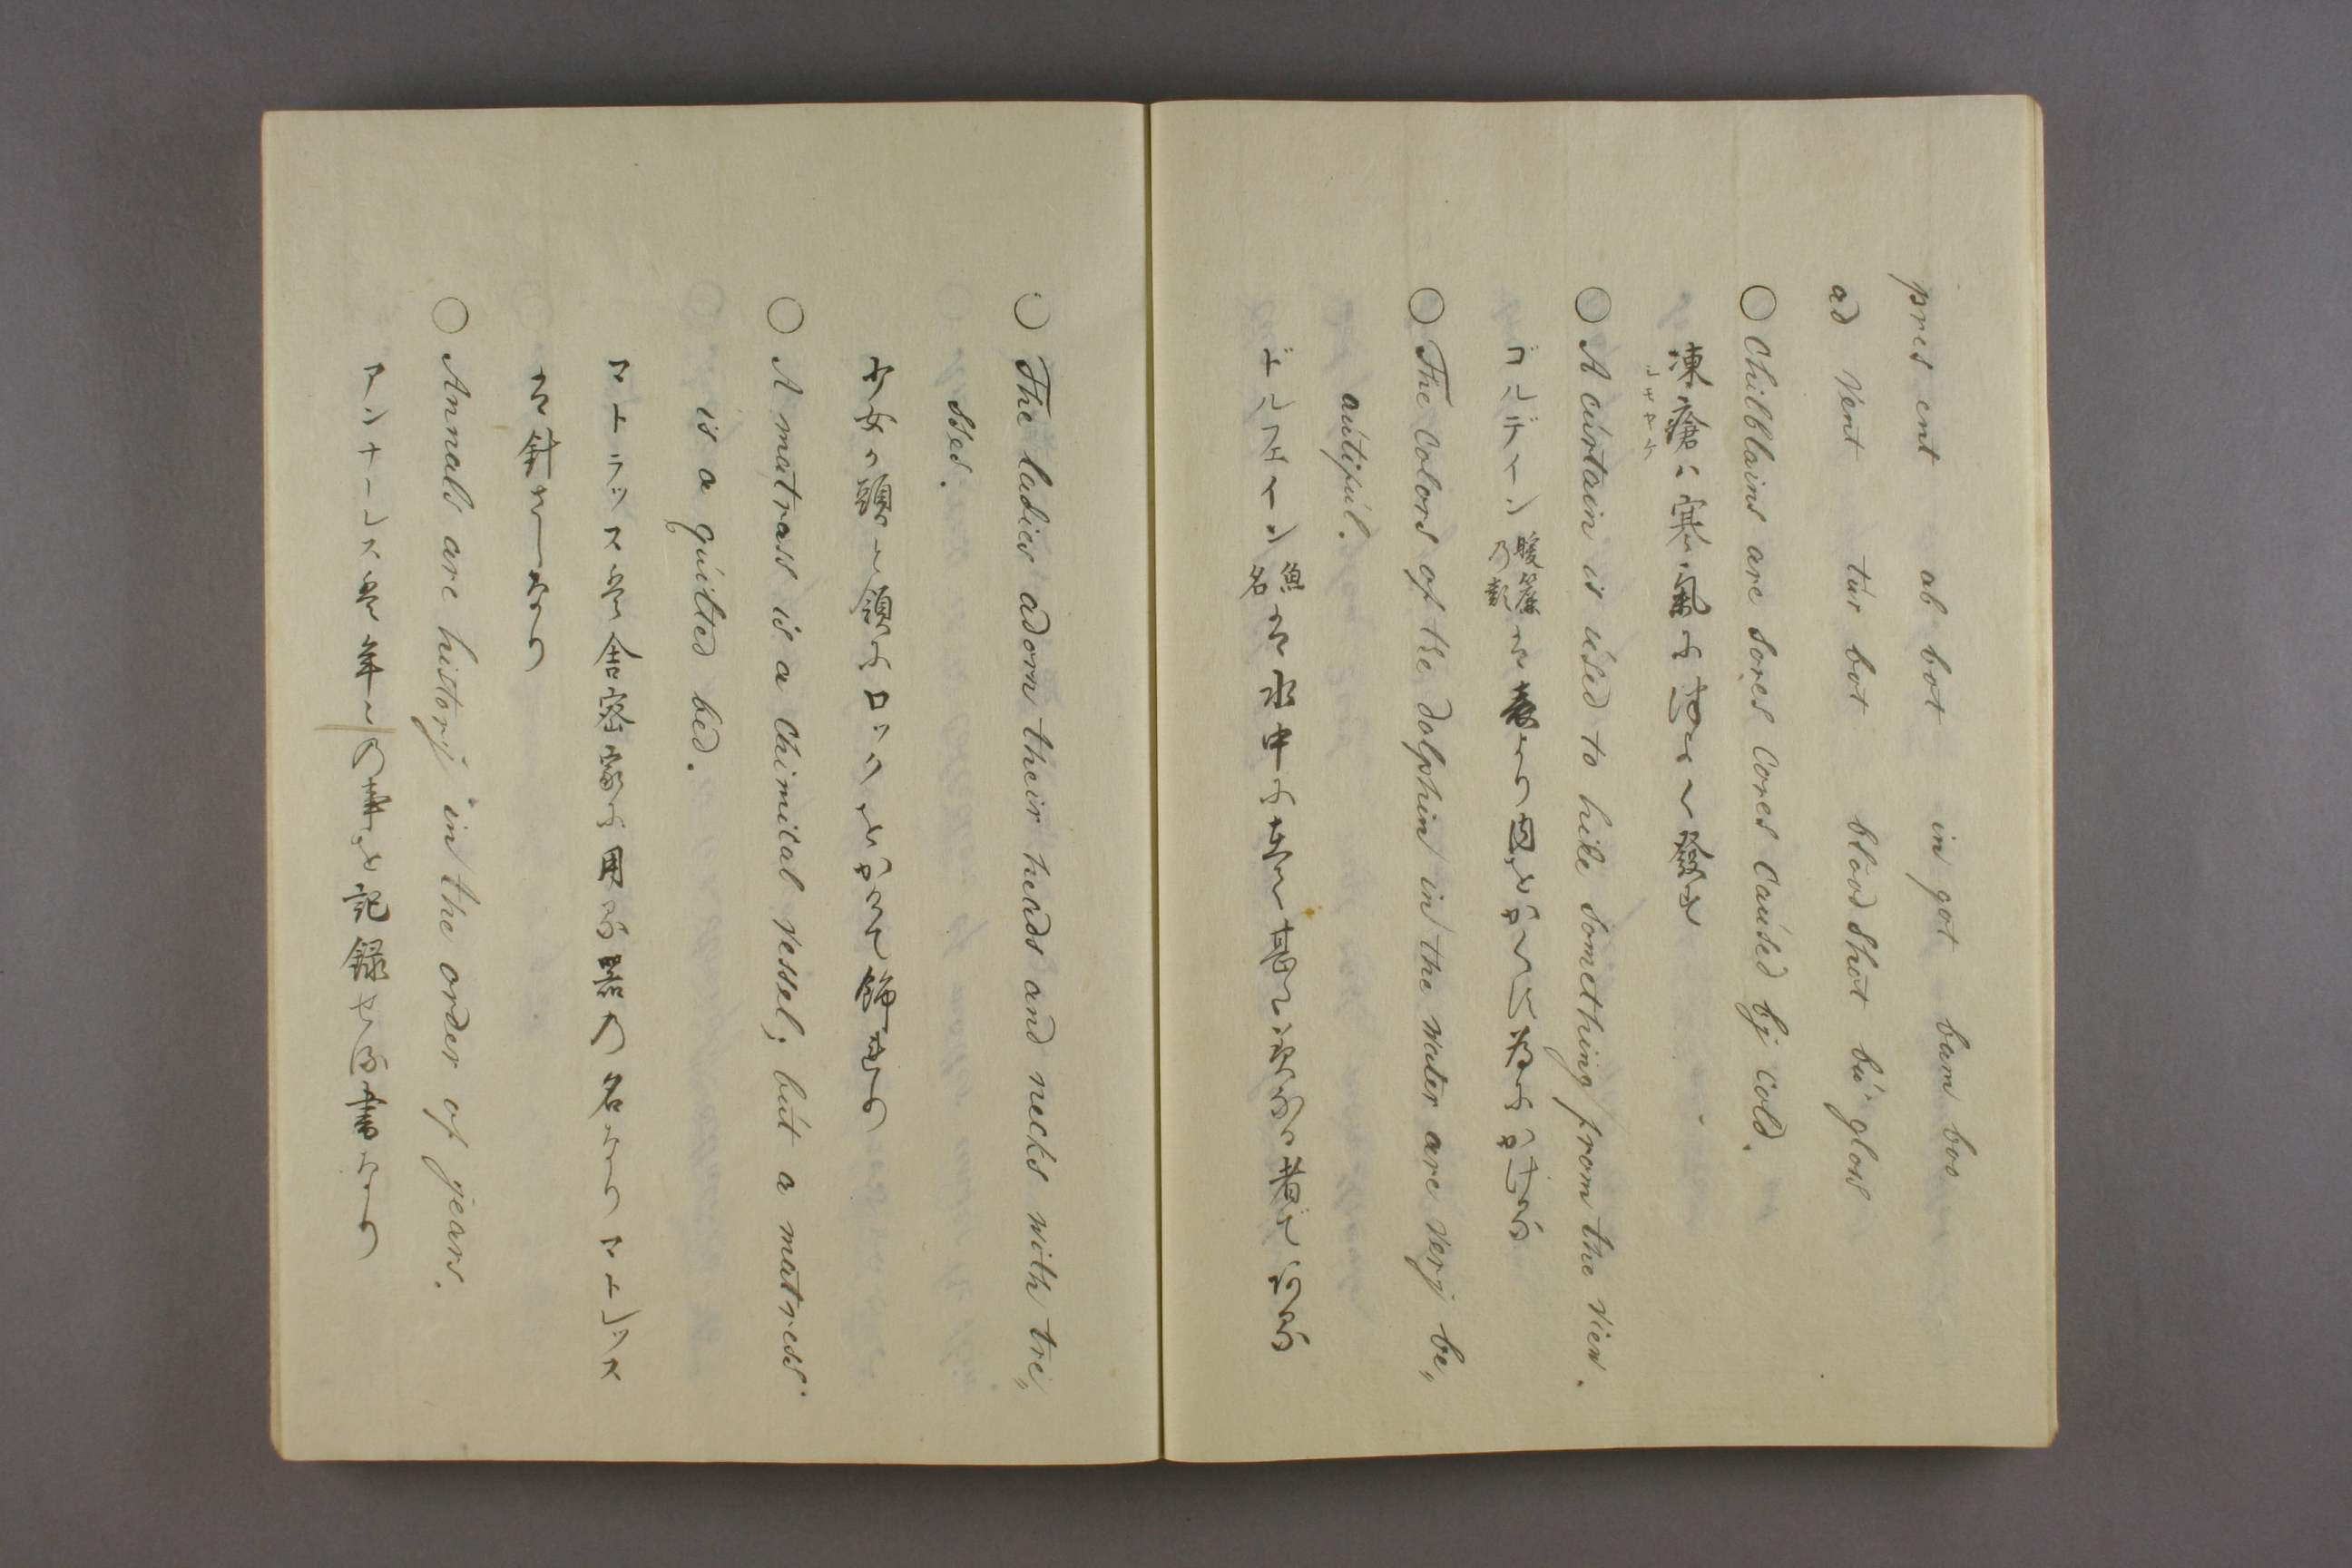 pres ent ab bot in got bam boo
ad vent tur bot blood shot bu glos
○ Chilblains are sores cores caused by cold.
凍瘡ハ寒氣よ
シモヤケ
発す
○ A curtain is used to hike something from the view.
ゴルデイン暖簾乃
表より内をか 為よかける
○ The colors of the dolphin in the water are very be„
autiful.
ドルフエイン魚名
水中よ 甚 者
○ The ladies adorn their heads and necks with tre„
sses.
少女ハ頭と領よロックをかけて飾
○ A matrass is a chimical vessel; but a matress
is a quilted bed.
マトラッス 舎密家よ用る器の名なりマトレッス
針 なり
○ Annals are history in the order of years.
アンナールス 年々の事を記録せる書なり